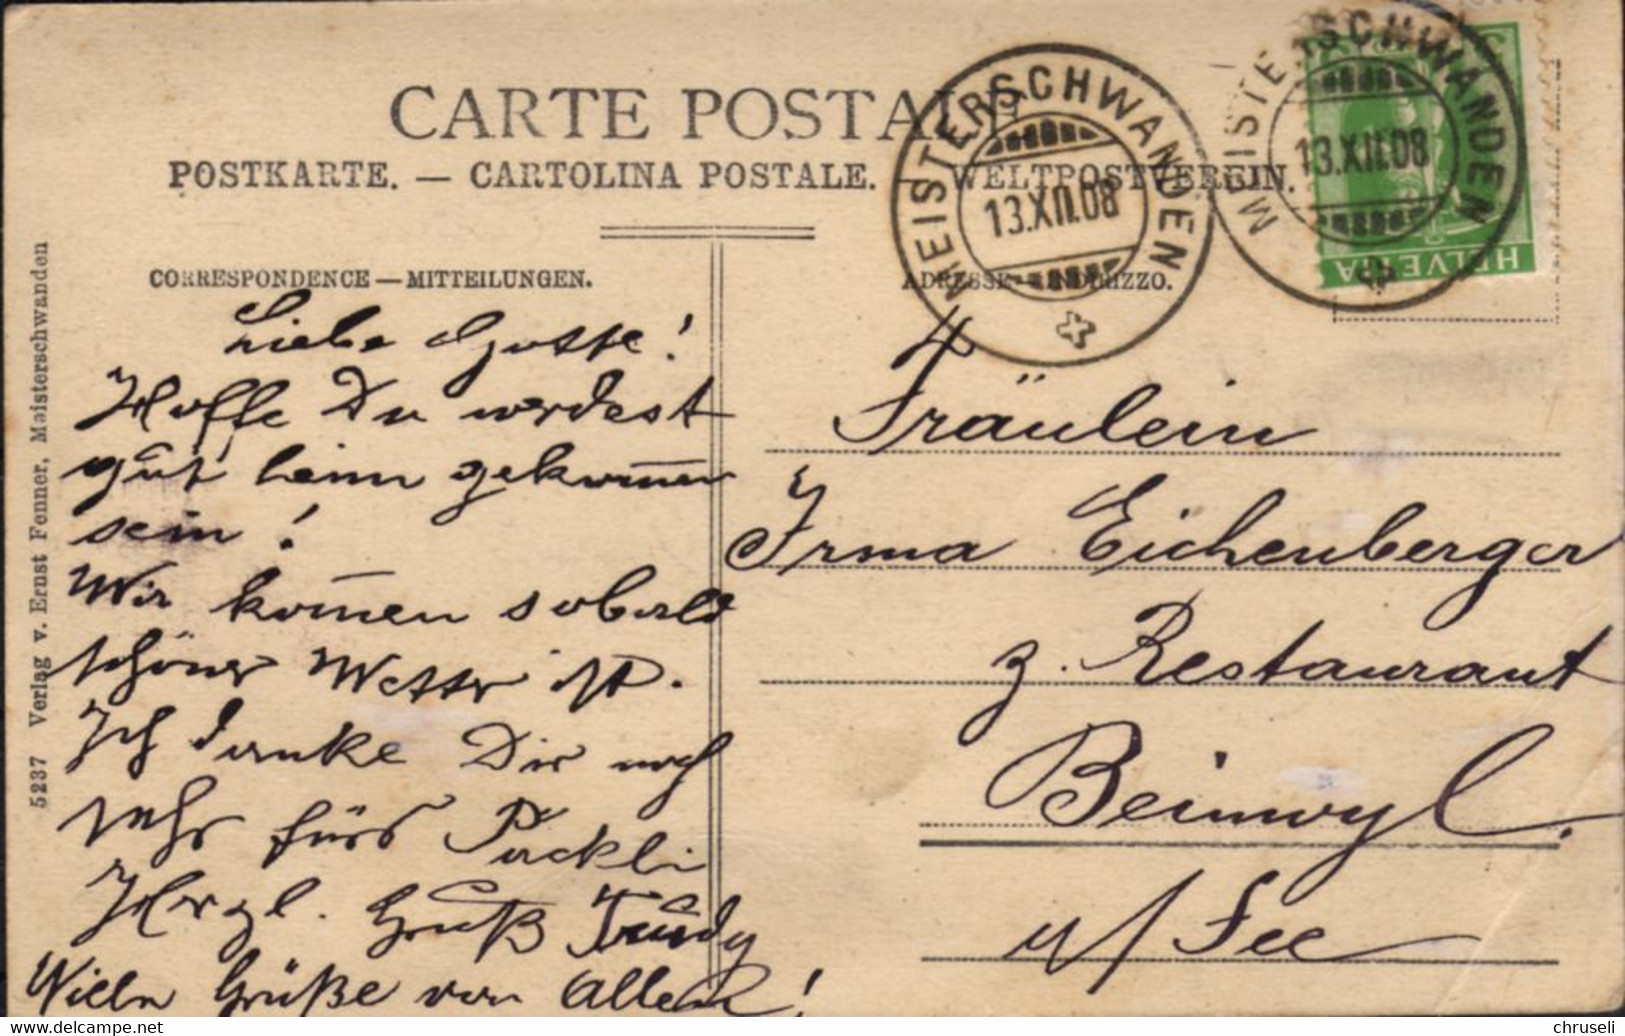 CARTE POSTALE
POSTKARTE. — CARTOLINA POSTALE. — WELTPOSTVEREIN.
MEISTERSCHWANDEN
13.XII.08
MEISTERSCHWANDEN
13.XII.08
HELVETIA
CORRESPONDENCE — MITTEILUNGEN.
ADRESSE — INDIRIZZO.
5237 Verlag v. Ernst Fenner, Meisterschwanden
Liebe Gotte!
Hoffe Du werdest
gut heim gekom̅en
sein!
Wir kom̅en sobald
schöner Wetter ist.
Ich danke Dir noch
sehr fürs Päckli
Herzl. Gruß Trudy
Viele Grüße von Allen!
Fräulein
Irma Eichenberger
z. Restaurant
Beinwyl.
a/See
www.delcampe.net
chruseli